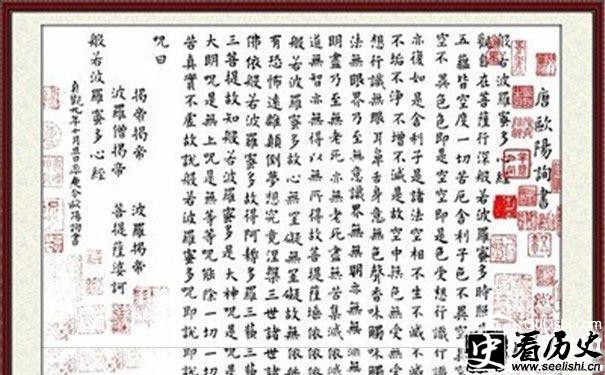 唐歐陽詢書
般若波羅蜜多心經
觀自在菩薩行深般若波羅蜜多時照
五蘊皆空度一切苦厄舍利子色不異空
空不異色色即是空空即是色受想行識
亦復如是舍利子是諸法空相不生不滅不滅
不垢不淨不增不減是故空中無色無受無
想行識無眼耳鼻舌身意無色聲香味觸味觸
法無眼界乃至無意識界無無明亦無無
明盡乃至無老死亦無老死盡無苦集滅集滅
道無智亦無得以無所得故菩提薩埵依
般若波羅蜜多故心無罣礙無罣礙故無
有恐怖遠離顛倒夢想究竟涅槃三世諸世諸
佛依般若波羅蜜多故得阿耨多羅三藐三藐
三菩提故知般若波羅蜜多是大神呪是呪是
大明呪是無上呪是無等等呪能除一切一切
苦真實不虛故說般若波羅蜜多呪即說即說
呪曰
揭帝揭帝 波羅揭帝
波羅僧揭帝 菩提薩婆訶
般若波羅蜜多心經
貞觀九年十月旦日率更令歐陽詢書
看历史
www.seelishi.cn